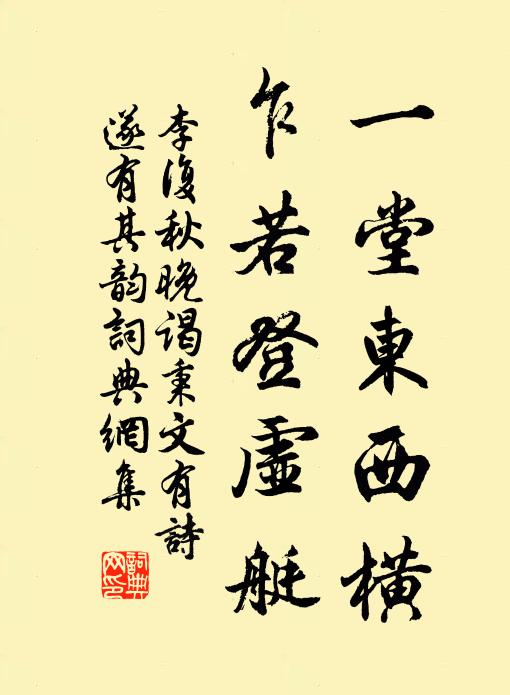 一堂東西橫
乍若登虛艇
李復秋晚謁秉文有詩
遂有其韵詞典網集
詞典网印